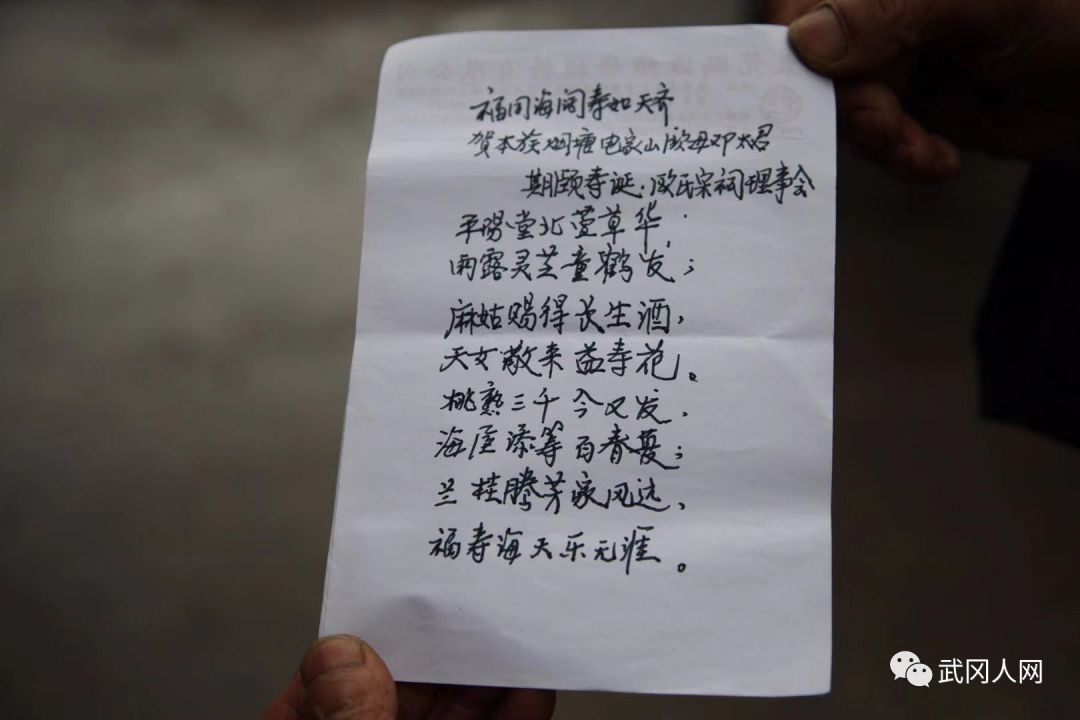 福同海阔寿如天齐
贺本族烟塘电家山欧母邓太君
期颐寿诞.欧氏宗祠理事会
平阳堂北萱草华,
雨露灵芝童鹤发;
麻姑赐得长生酒,
天女散来益寿花。
桃熟三千今又发,
海屋添筹百春夏;
兰桂腾芳家风远,
福寿海天乐无涯。
武冈人网